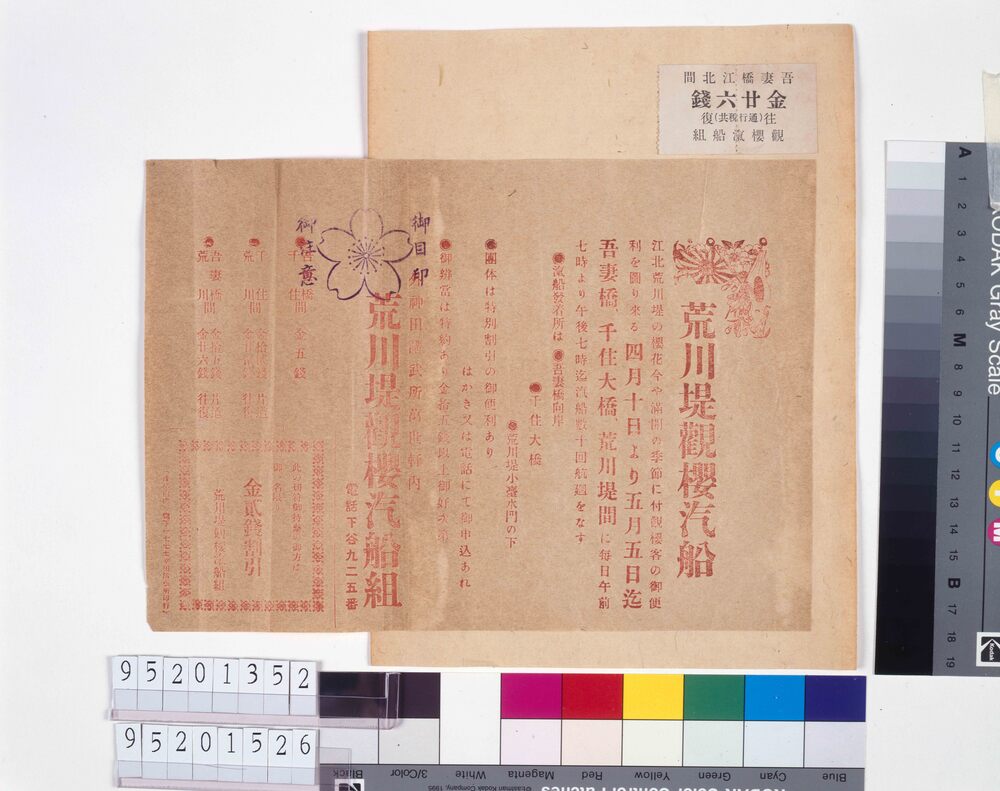 吾妻橋江北間
金廿六錢
往(通行税共)復
觀櫻滊船組
荒川堤觀櫻汽船
江北荒川堤の櫻花今や滿開の季節に付觀櫻客の御便
利を圖り來る四月十日より五月五日迄
吾妻橋、千住大橋、荒川堤間に毎日午前
七時より午後七時迄汽船數十回航運をなす
●滊船發着所は●吾妻橋向岸
●千住大橋
●荒川堤小臺水門の下
●團体は特別割引の御便利あり
はかき又は電話にて御申込あれ
●御辨當は特約あり金拾五錢以上御好み
荒川堤觀櫻汽船組
電話下谷九二五番
御目印
御注意
金五錢
吾妻橋間 金拾五錢 片道
荒川間 金廿六錢 往復
金貳錢割引
荒川堤觀櫻汽船組
95201352
95201526
KODAK Gray Scale
A 1 2 3 4 5 6 M 8 9 10 11 12 13 14 15 B 17 18 19
Kodak
C
Y
M
Blue Cyan Green Yellow Red Magenta White 3/Color Black
KODAK Color Control Patches
©Eastman Kodak Company, 1995